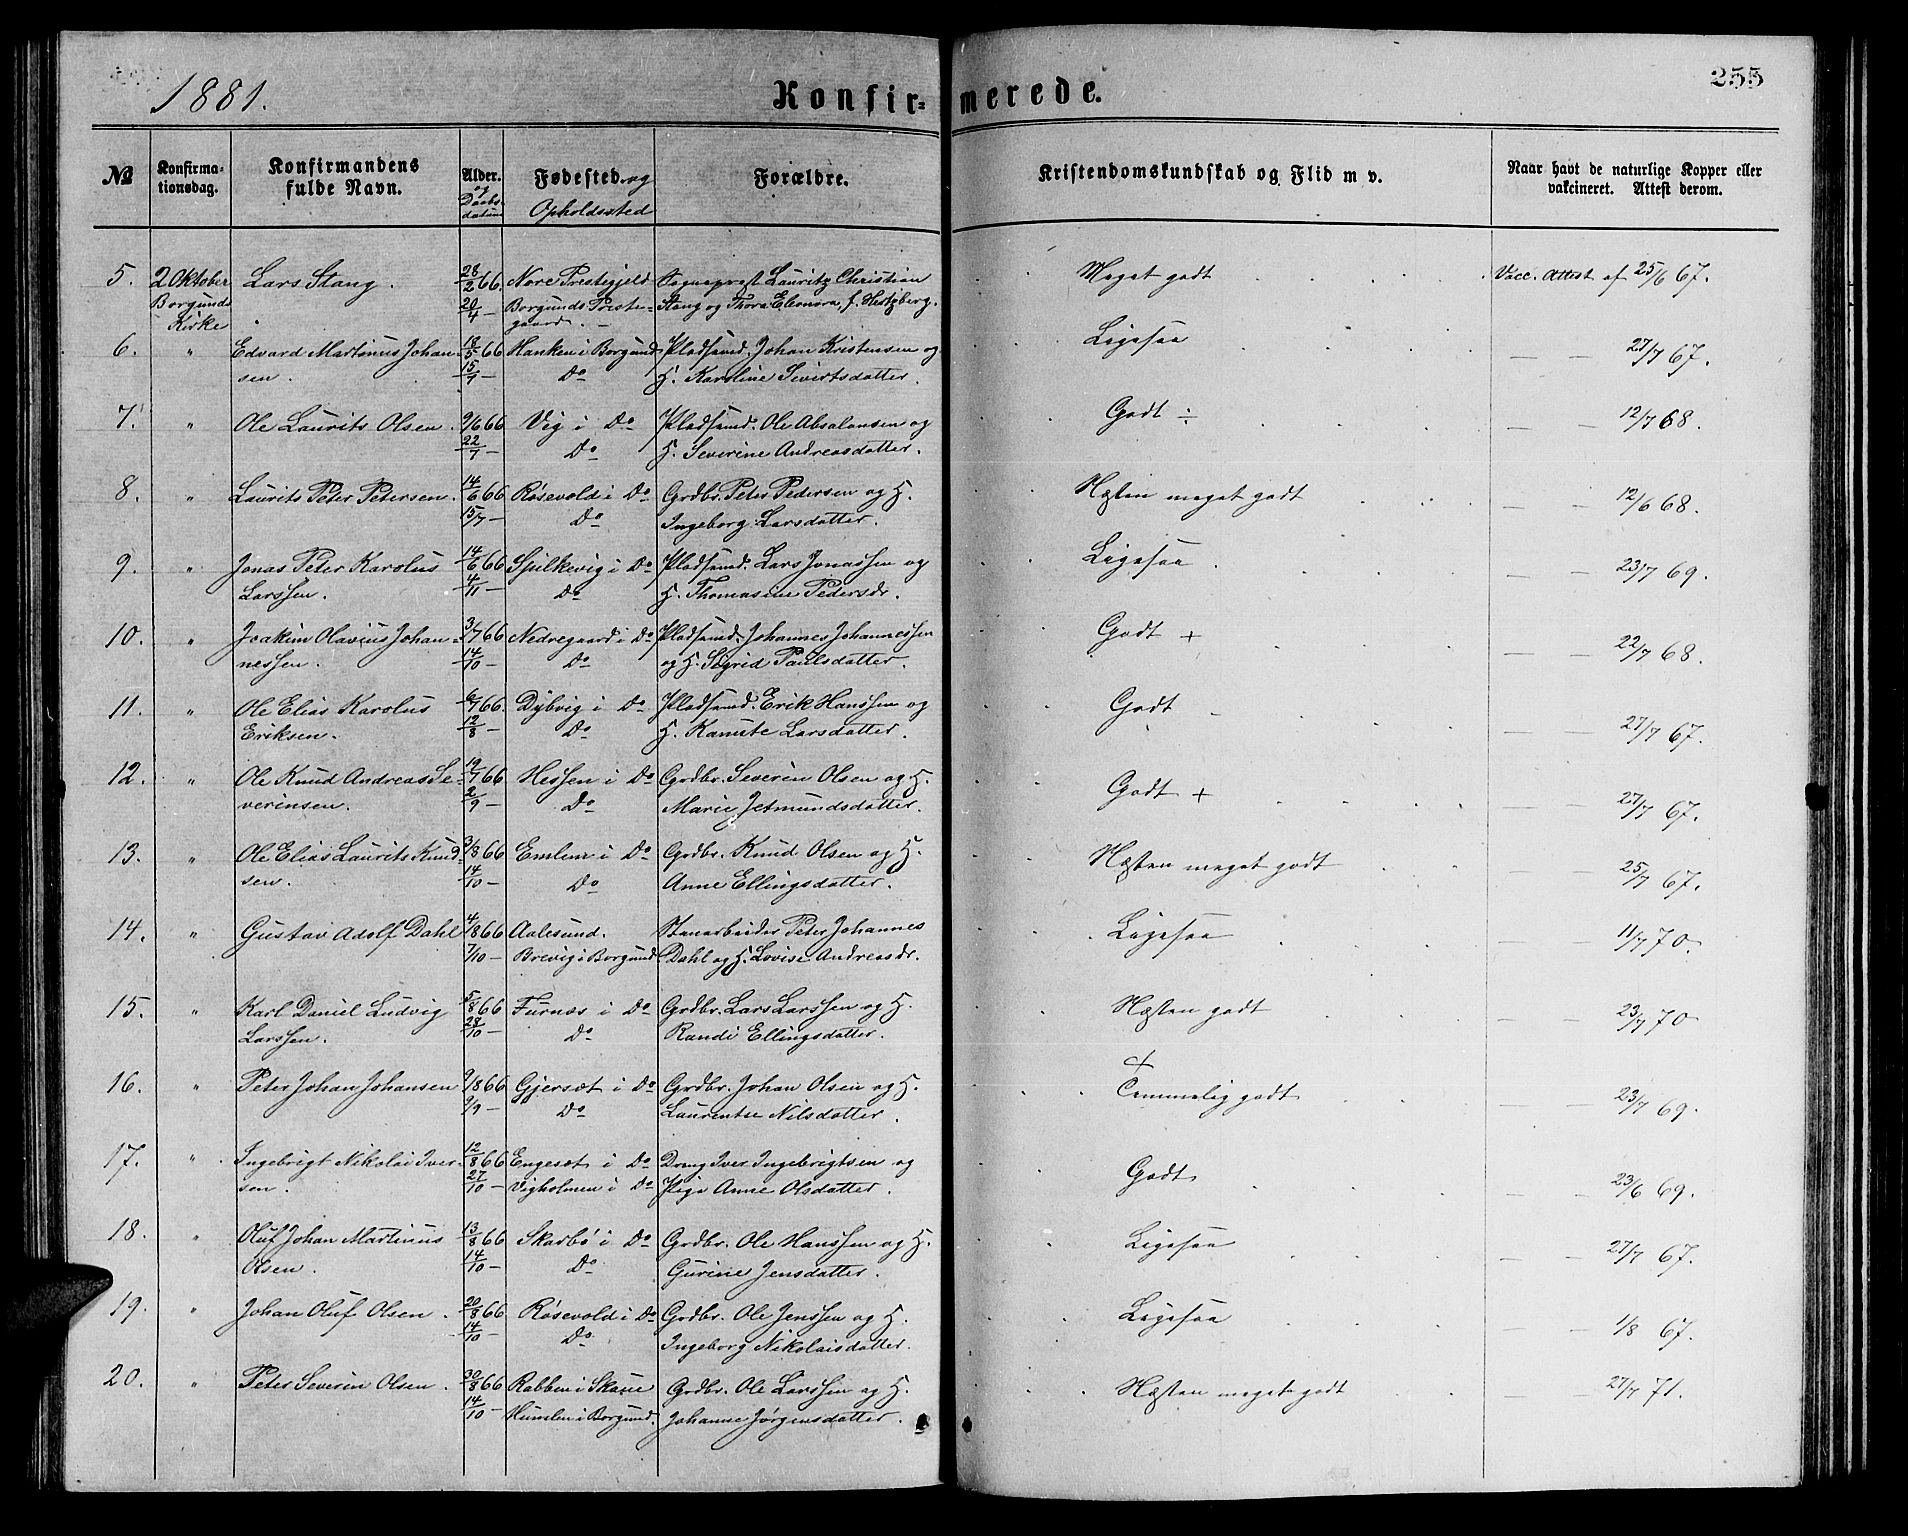 1881.
Konfir-
merede.
255
№
Konfirma-
tionsdag.
Konfirmandens
fulde Navn.
Alder.
og
Daabs-
datum
Fødested og
Opholdssted
Forældre.
Kristendomskundskab og Flid m v.
Naar havt de naturlige Kopper eller
vakcineret. Attest derom.
5. 2 Oktober Lars Stang. 28/2 66. Nore Prestegjeld Sogneprest Lauritz Christian Meget godt Vacc. Attest af 25/6 67.
Borgunds 20/4 — Borgunds Preste- Stang og Thora Eleonora, f. Hertzberg.
Kirke gaard. —
6. " Edvard Martinus Johan- 18/5 66 Hanken i Borgund Pladsmd. Johan Kristensen og Ligesaa — — 27/7 67.
sen. 15/7 — Do H. Karoline Sivertsdatter.
7. " Ole Laurits Olsen. 9/6 66 Vig i Do Pladsmd. Ole Absalonsen og Godt ÷ — — 12/7 68.
22/7 — Do H. Severine Andreasdatter.
8. " Laurits Peter Petersen. 14/6 66 Røsevold i Do Grdbr. Peter Pedersen og H. Næsten meget godt — — 12/6 68.
15/7 — Do Ingeborg Larsdatter.
9. " Jonas Peter Karolus 14/6 66 Spilkevig i Do Pladsmd. Lars Jonassen og Ligesaa — — 23/7 69.
Larssen. 4/11 — Do H. Thomasine Pedersdr.
10. " Joakim Olavius Johan- 3/7 66 Nedregaard i Do Pladsmd. Johannes Johannessen Godt + — — 22/7 68.
nessen. 14/10 — Do og H. Sigrid Paulsdatter.
11. " Ole Elias Karolus 6/7 66 Dybvig i Do Pladsmd. Erik Hanssen og Godt — — 27/7 67.
Eriksen. 12/8 — Do H. Kanute Larsdatter.
12. " Ole Knud Andreas Se- 19/7 66 Hessen i Do Grdbr. Severin Olsen og H. Godt + — — 27/7 67.
verinsen. 2/9 — Do Marie Jetmundsdatter.
13. " Ole Elias Laurits Knud- 3/8 66 Emlem i Do Grdbr. Knud Olsen og H. Næsten meget godt — — 25/7 67.
sen. 14/10 — Do Anne Ellingsdatter.
14. " Gustav Adolf Dahl 4/8 66 Aalesund. Stenarbeider Peter Johannes Ligesaa — — 11/7 70.
7/10 — Brevig i Borgund Dahl og H. Lovise Andreasdr.
15. " Karl Daniel Ludvig 5/8 66 Furnæs i Do Grdbr. Lars Larssen og H. Næsten godt — — 23/7 70
Larssen. 28/10 — Do Randi Ellingsdatter.
16. " Peter Johan Johansen 9/8 66 Gjersæt i Do Grdbr. Johan Olsen og H. + Temmelig godt — — 23/7 69.
9/9 — Do Laurentse Nilsdatter.
17. " Ingebrigt Nikolai Iver- 12/8 66 Engesæt i Do Dreng Iver Ingebrigtsen og Godt — — 23/6 69.
sen. 27/10 — Vigholmen i Do Pige Anne Olsdatter.
18. " Oluf Johan Martinus 13/8 66 Skarbø i Do Grdbr. Ole Hanssen og H. Ligesaa — — 27/7 67.
Olsen. 14/10 — Do Gurine Jensdatter.
19. " Johan Oluf Olsen. 20/8 66 Røsevold i Do Grdbr. Ole Jenssen og H. Ligesaa — — 1/8 67.
14/10 — Do Ingeborg Nikolaisdatter.
20. " Peter Severin Olsen. 30/8 66 Rabben i Skaue Grdbr. Ole Larssen og H. Næsten meget godt — — 27/7 71.
14/10 — Humlen i Borgund. Johanne Jørgensdatter.